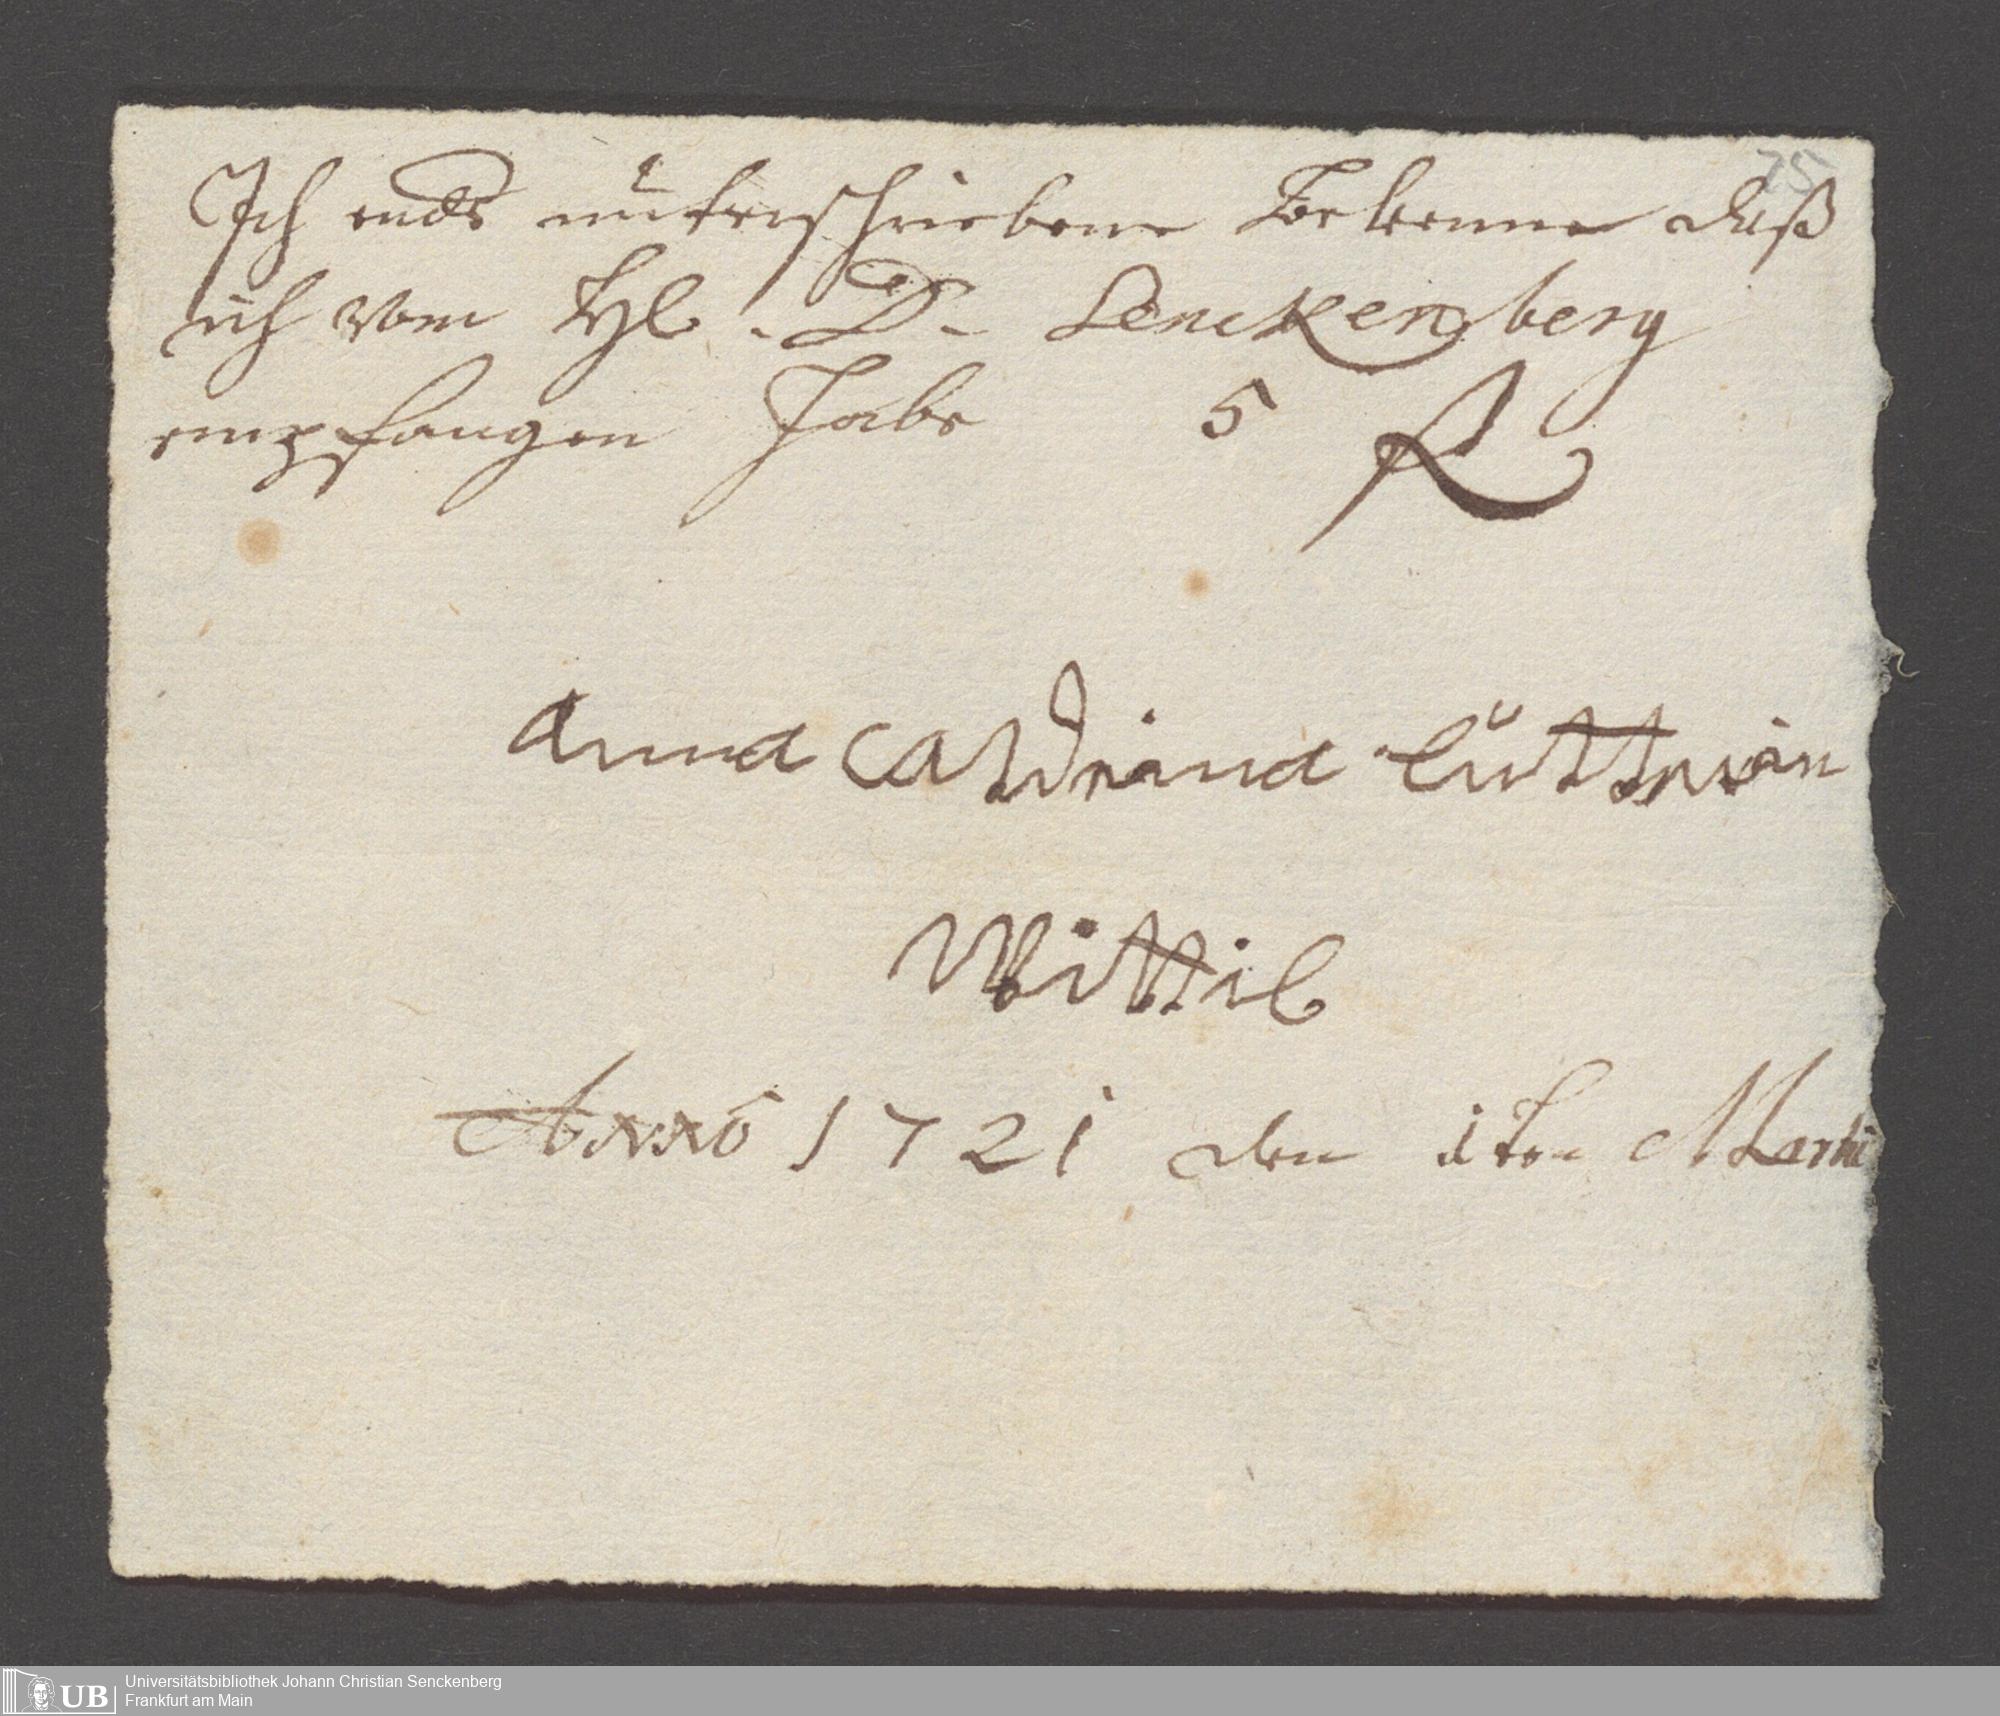 75
Ich ends unterschriebene Bekenne daß
ich vom Hl. D. Senckenberg
empfangen habe 5 R
Anna Catdrina
Wittib
Anno 1721 den 1ten Marti
Universitätsbibliothek Johann Christian Senckenberg
UB Frankfurt am Main